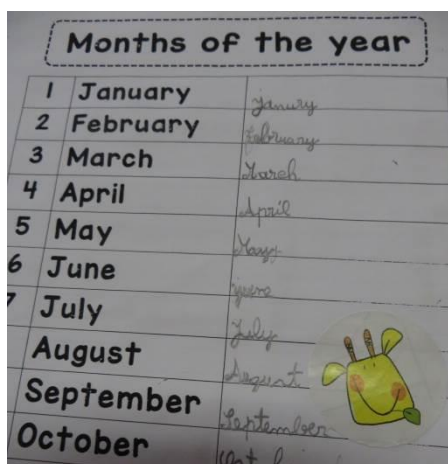 Months of the year
1 January janury
2 February february
3 March March
4 April April
5 May May
6 June june
7 July July
August August
September September
October